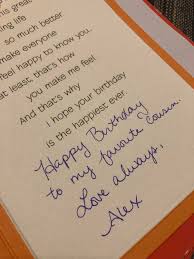 this great
ing life
so much better
make everyone
feel happy to know you..
at least that's how
you make me feel
And that's why
i hope your birthday
is the happiest ever
Happy Birthday
to my favorite Cousin.
Love always,
Alex